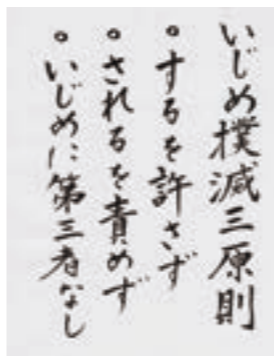 いじめ撲滅三原則
。するを許さず
。されるを責めず
。いじめに第三者なし